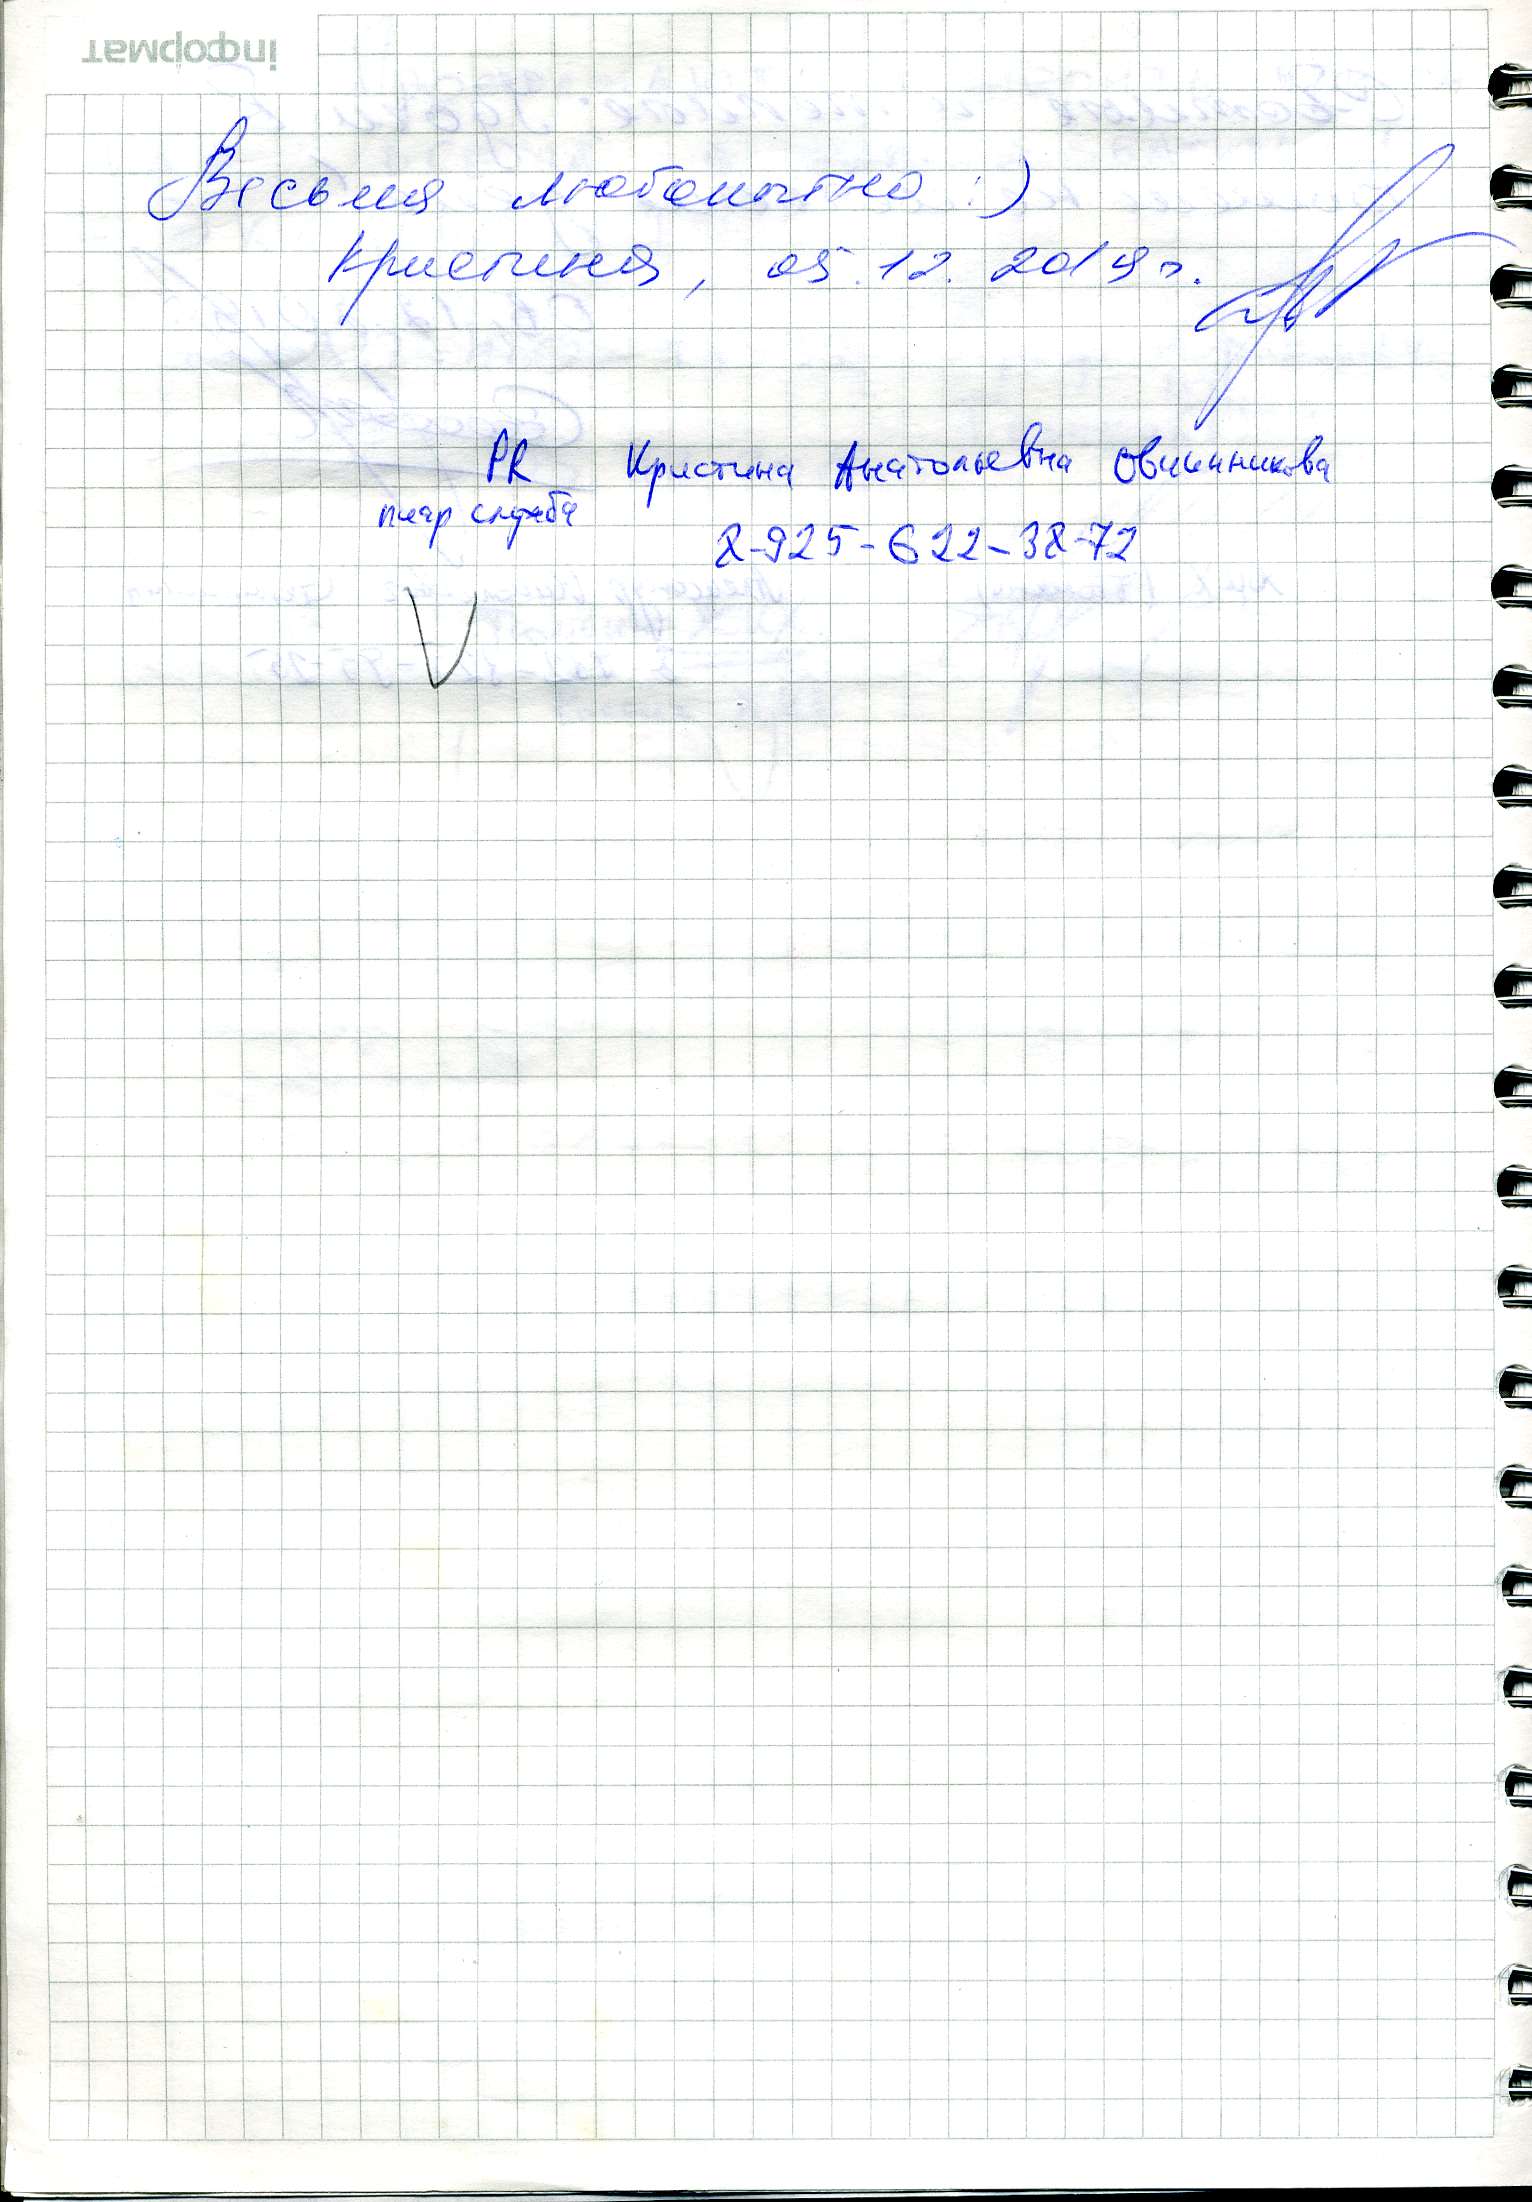 інформат
Весьма любопытно :)
Кристина, 05.12.2019г.
PR Кристина Анатольевна Овчинникова
пиар служба
8-925-622-38-72